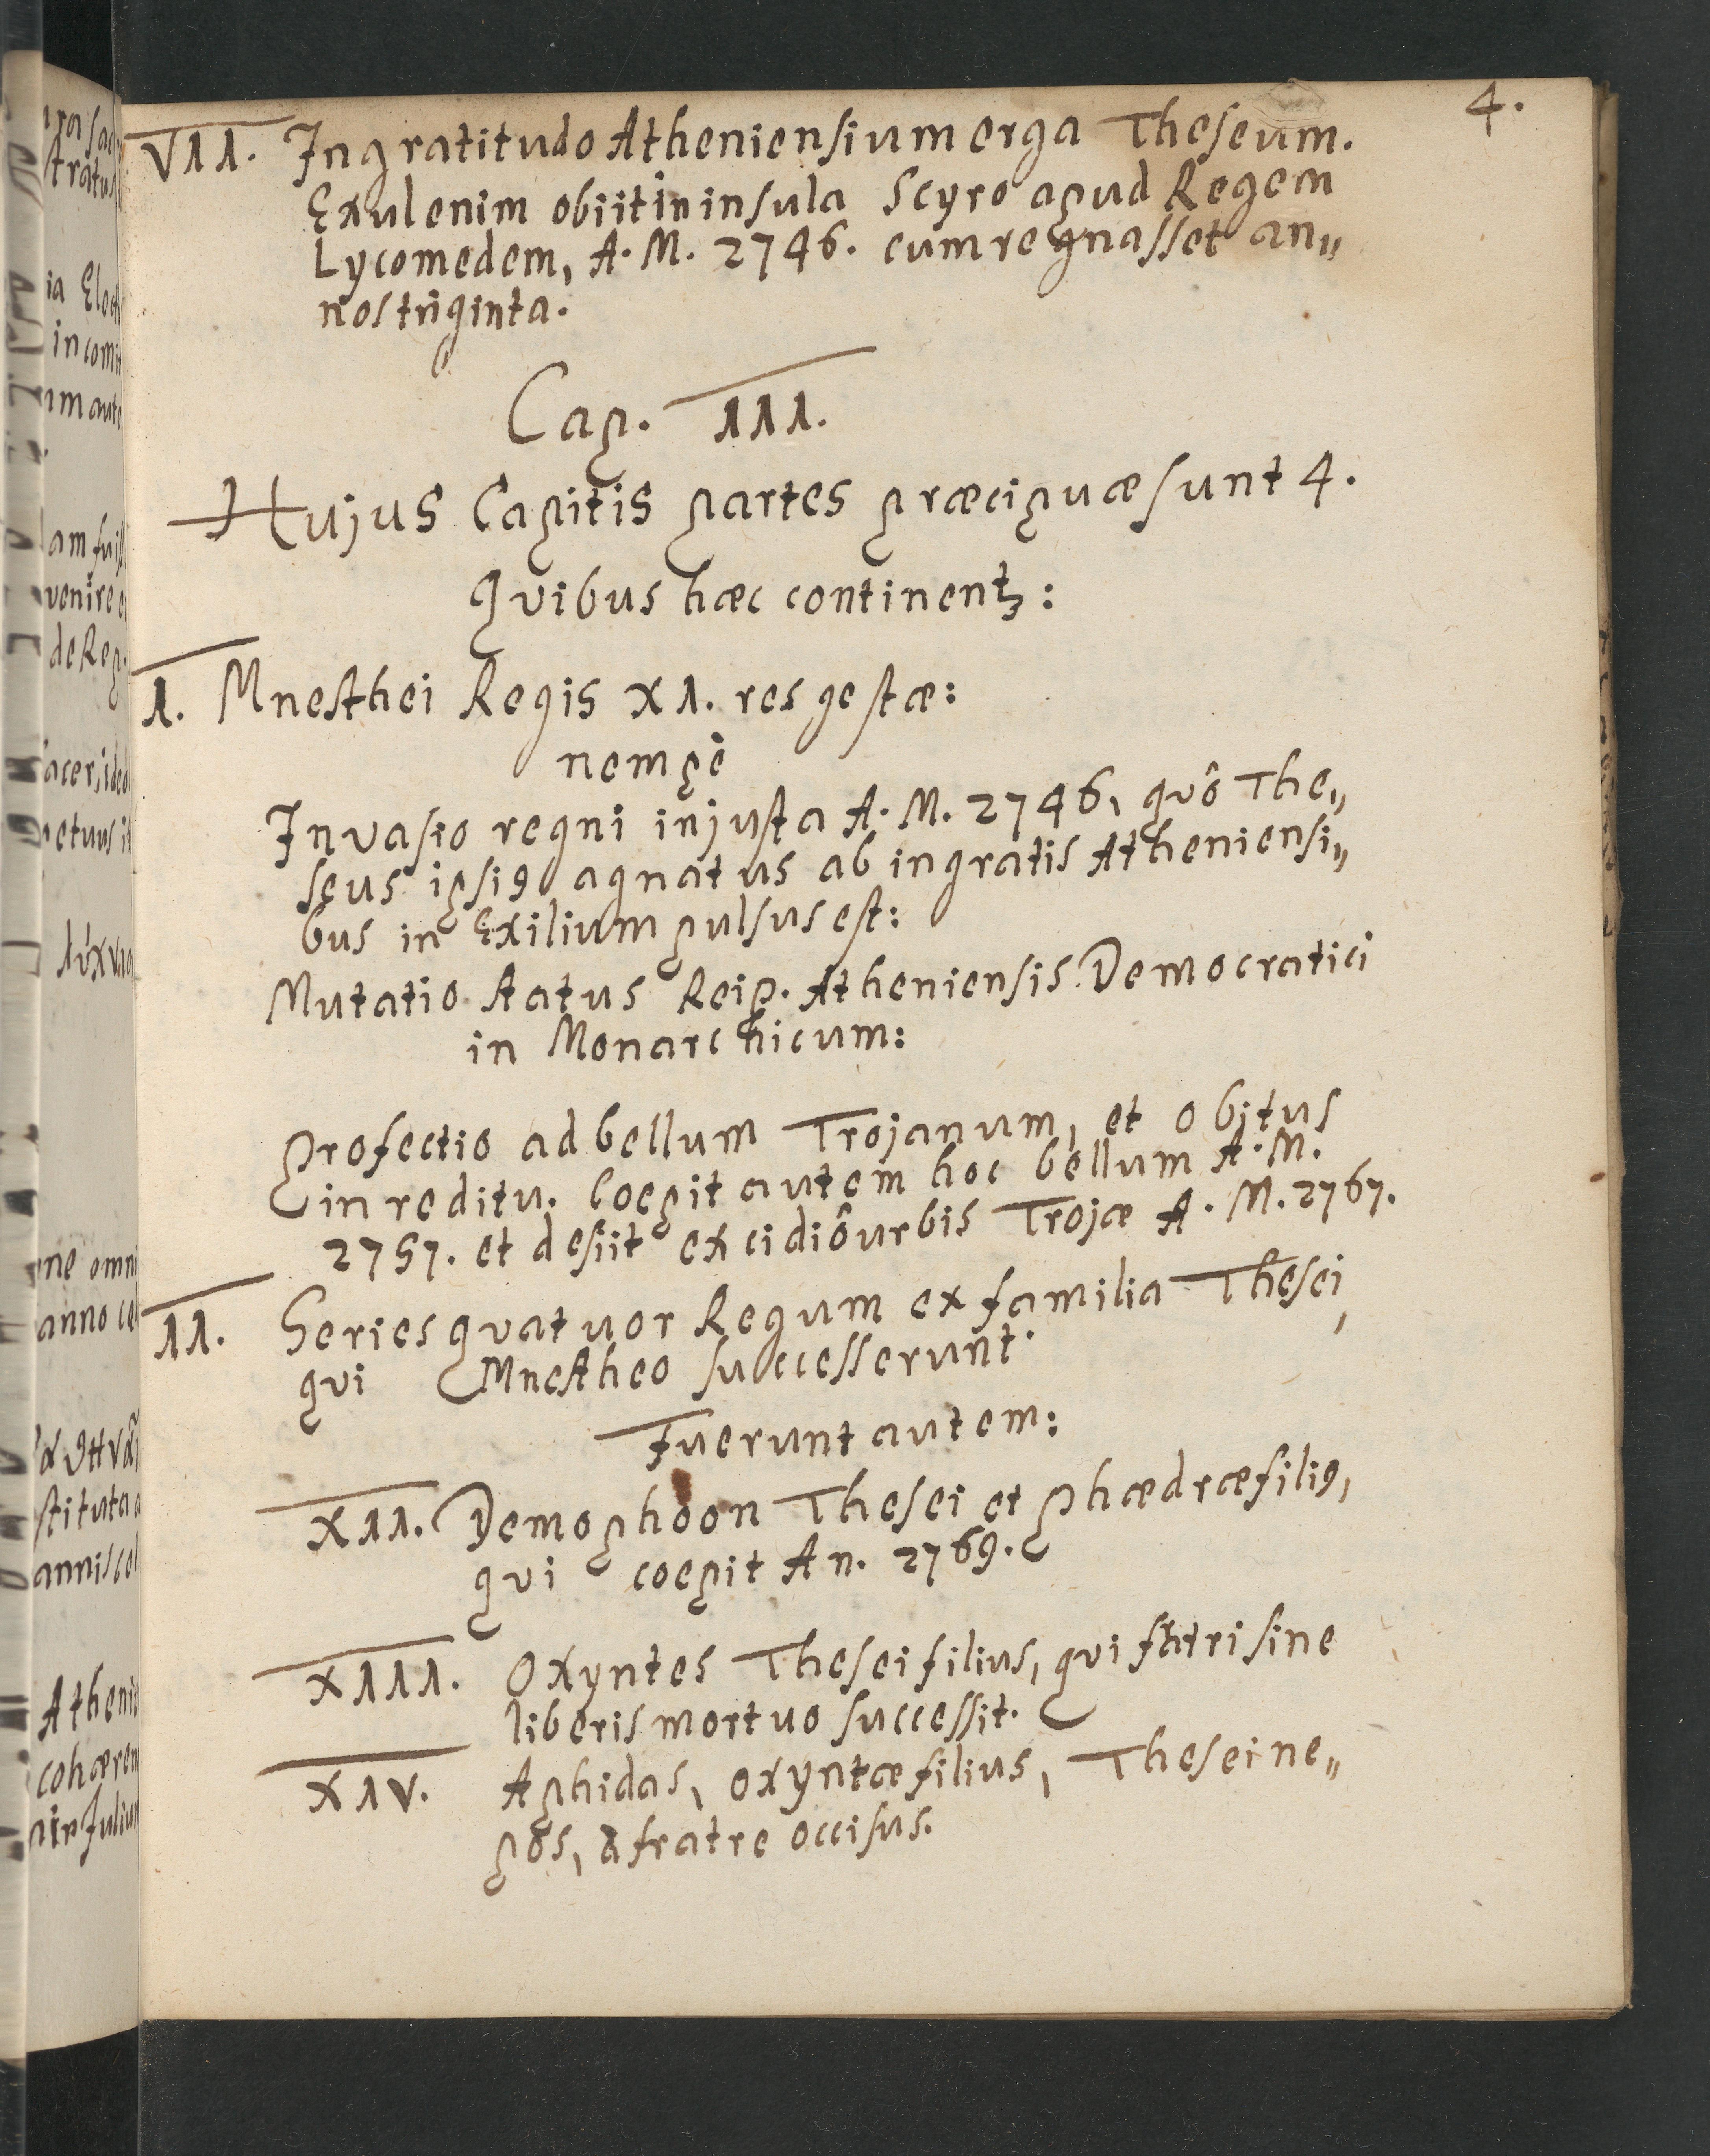 4.
VII. Ingratitudo Atheniensium erga Theseum.
Exul enim obiit in insula Scyro apud Regem
Lycomedem, A. M. 2746. cum regnasset an„
nos triginta.
Cap. III.
Hujus Capitis partes præcipuæ sunt 4.
Qvibus hæc continentꝫ:
I. Mnesthei Regis XI. res gestæ:
nempè
Invasio regni injusta A. M. 2746, qvô The„
seus ipsiꝯ agnatus ab ingratis Atheniensi„
bus in Exilium pulsus est:
Mutatio status Reip. Atheniensis Democratici
in Monarchicum:
Profectio ad bellum Trojanum, et obitus
in reditu. Coepit autem hoc bellum A. M.
2757. et desiit excidiô urbis Trojæ A. M. 2767.
II. Series qvatuor Regum ex familia Thesei,
qvi Mnestheo successerunt.
Fuerunt autem:
XII. Demophoon Thesei et Phædræ filiꝯ,
qvi coepit An. 2769.
XIII. Oxyntes Thesei filius, qvi fratri sine
liberis mortuo successit.
XIV. Aphidas, Oxyntæ filius, Thesei ne„
pos, à fratre occisus.